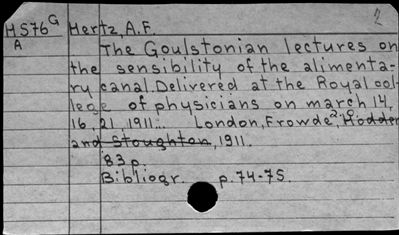 HS76G Hertz, A.F. 2
A
The Goulstonian lectures on
the sensibility of the alimenta-
ry canal. Delivered at the Royal col-
lege of physicians on march 14,
16, 21, 1911... London, Frowde, Hodder
and Stoughton, 1911.
83 p.
Bibliogr. p. 74-75.